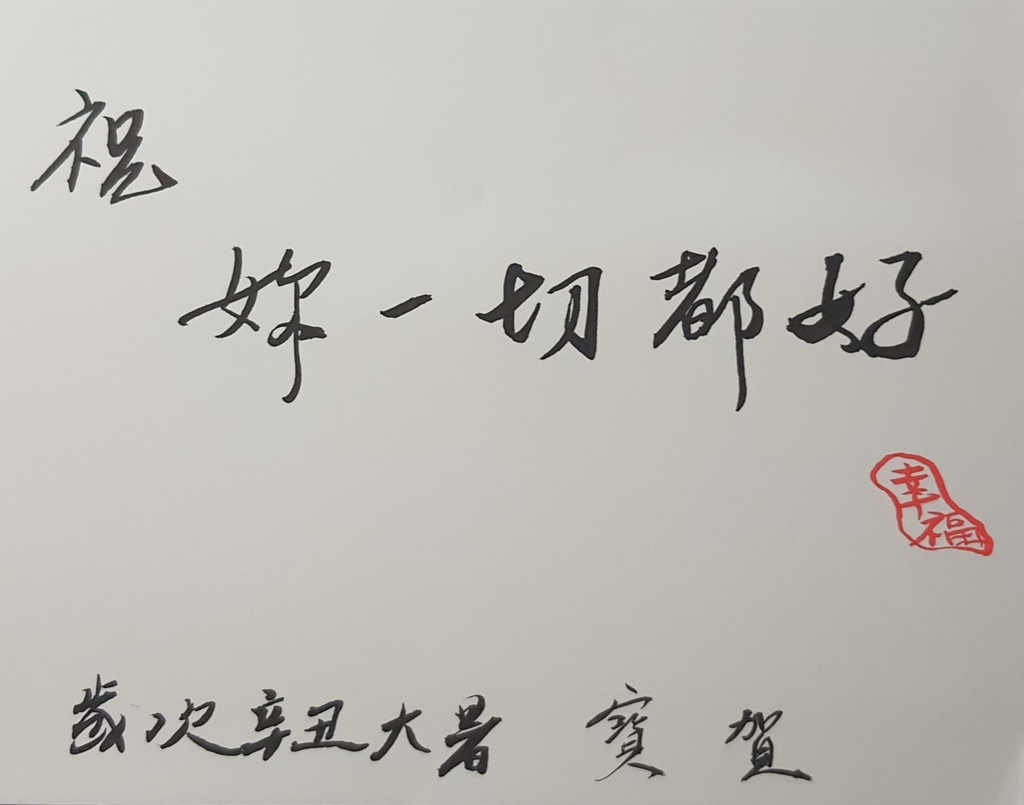 祝
妳一切都好
幸福
歲次辛丑大暑 寶賀